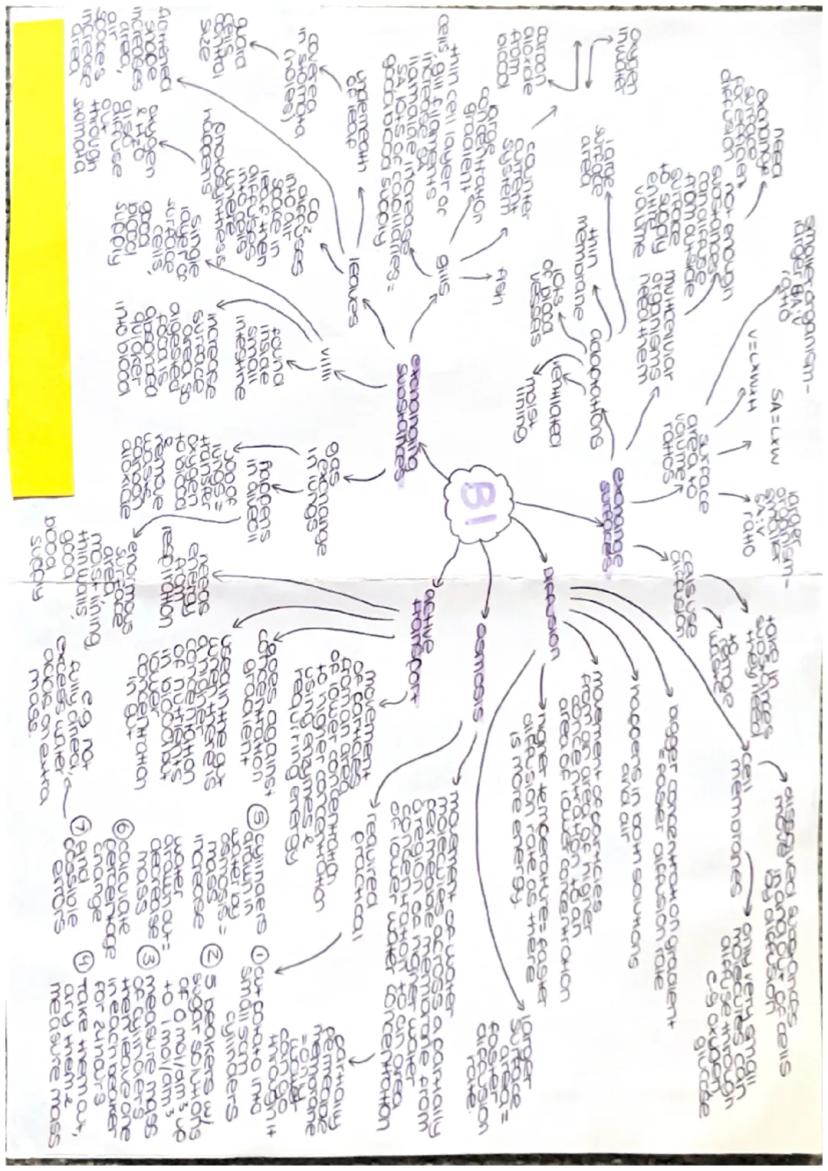 B1
exchange
surfaces
surface
area to
volume
ratios
smaller organism-
larger SA:V
ratio
V=LxWxH
SA=LxW
larger
organism-
smaller
SA:V
ratio
cells use
diffusion
take in
substances
they need
to remove
waste
multicellular
organisms
need them
not enough
substances
can diffuse
from outside
surface
to supply
entire
volume
need
exchange
surface
for efficient
diffusion
adaptations
large
surface
area
thin
membrane
lots
of blood
vessels
ventilated
moist
lining
diffusion
cell
membranes
dissolved substances
move in & out of cells
by diffusion
only very small
molecules can
diffuse through
e.g. oxygen,
glucose
bigger concentration gradient
= faster diffusion rate
happens in both solutions
and air
movement of particles
from an area of higher
concentration to an
area of lower concentration
higher temperature = faster
diffusion rate as there
is more energy
larger
surface
area =
faster
diffusion
rate
osmosis
movement of water
molecules across a partially
permeable membrane from
a region of higher water
concentration to an area
of lower water concentration
partially
permeable
membrane
= only
water
can go
through it
required
practical
① cut potato into
small 1cm
cylinders
② 5 beakers w/
sugar solutions
of 0 mol/dm³ up
to 1 mol/dm³
③ measure mass
of cylinders
then leave one
in each beaker
for 24 hours
④ Take them out,
dry them &
measure mass
⑤ cylinders
drawn in
water by
osmosis =
mass
increase
water
drawn out =
decrease
mass
⑥ calculate
percentage
change
⑦ find
possible
errors
e.g. not
fully dried,
excess water
adds on extra
mass.
active
transport
movement
of particles
from an area
of lower concentration
to higher concentration
using enzymes &
requiring energy
goes against
concentration
gradient
used in the gut
when there is
a higher
concentration
of nutrients
in lower
concentration
in gut
needs
energy
from
respiration
exchanging
substances
gas
exchange
in lungs
job of
lungs =
transfer
oxygen
to blood
& remove
waste
carbon
dioxide
happens
in alveoli
enormous
surface
area,
moist lining,
thin walls,
good
blood
supply
villi
found
inside
small
intestine
increase
surface
area so
digested
food is
absorbed
quicker
into blood
single
layer of
surface
cells,
good
blood
supply
leaves
CO₂
diffuses
into air
space in
leaf then
diffuses
into cells
where
photosynthesis
happens
oxygen
& H₂O
diffuse
out
through
stomata
underneath
of leaf
covered
in stomata
(holes)
guard
cells
control
size
flattened
shape
area,
air
spaces
increase
area
gills
fish
counter
current
system
oxygen
in water
carbon
dioxide
from
blood
large
concentration
gradient
thin cell layer of
cells, gill filaments
increase SA,
lamellae increase
SA, lots of capillaries =
good blood supply